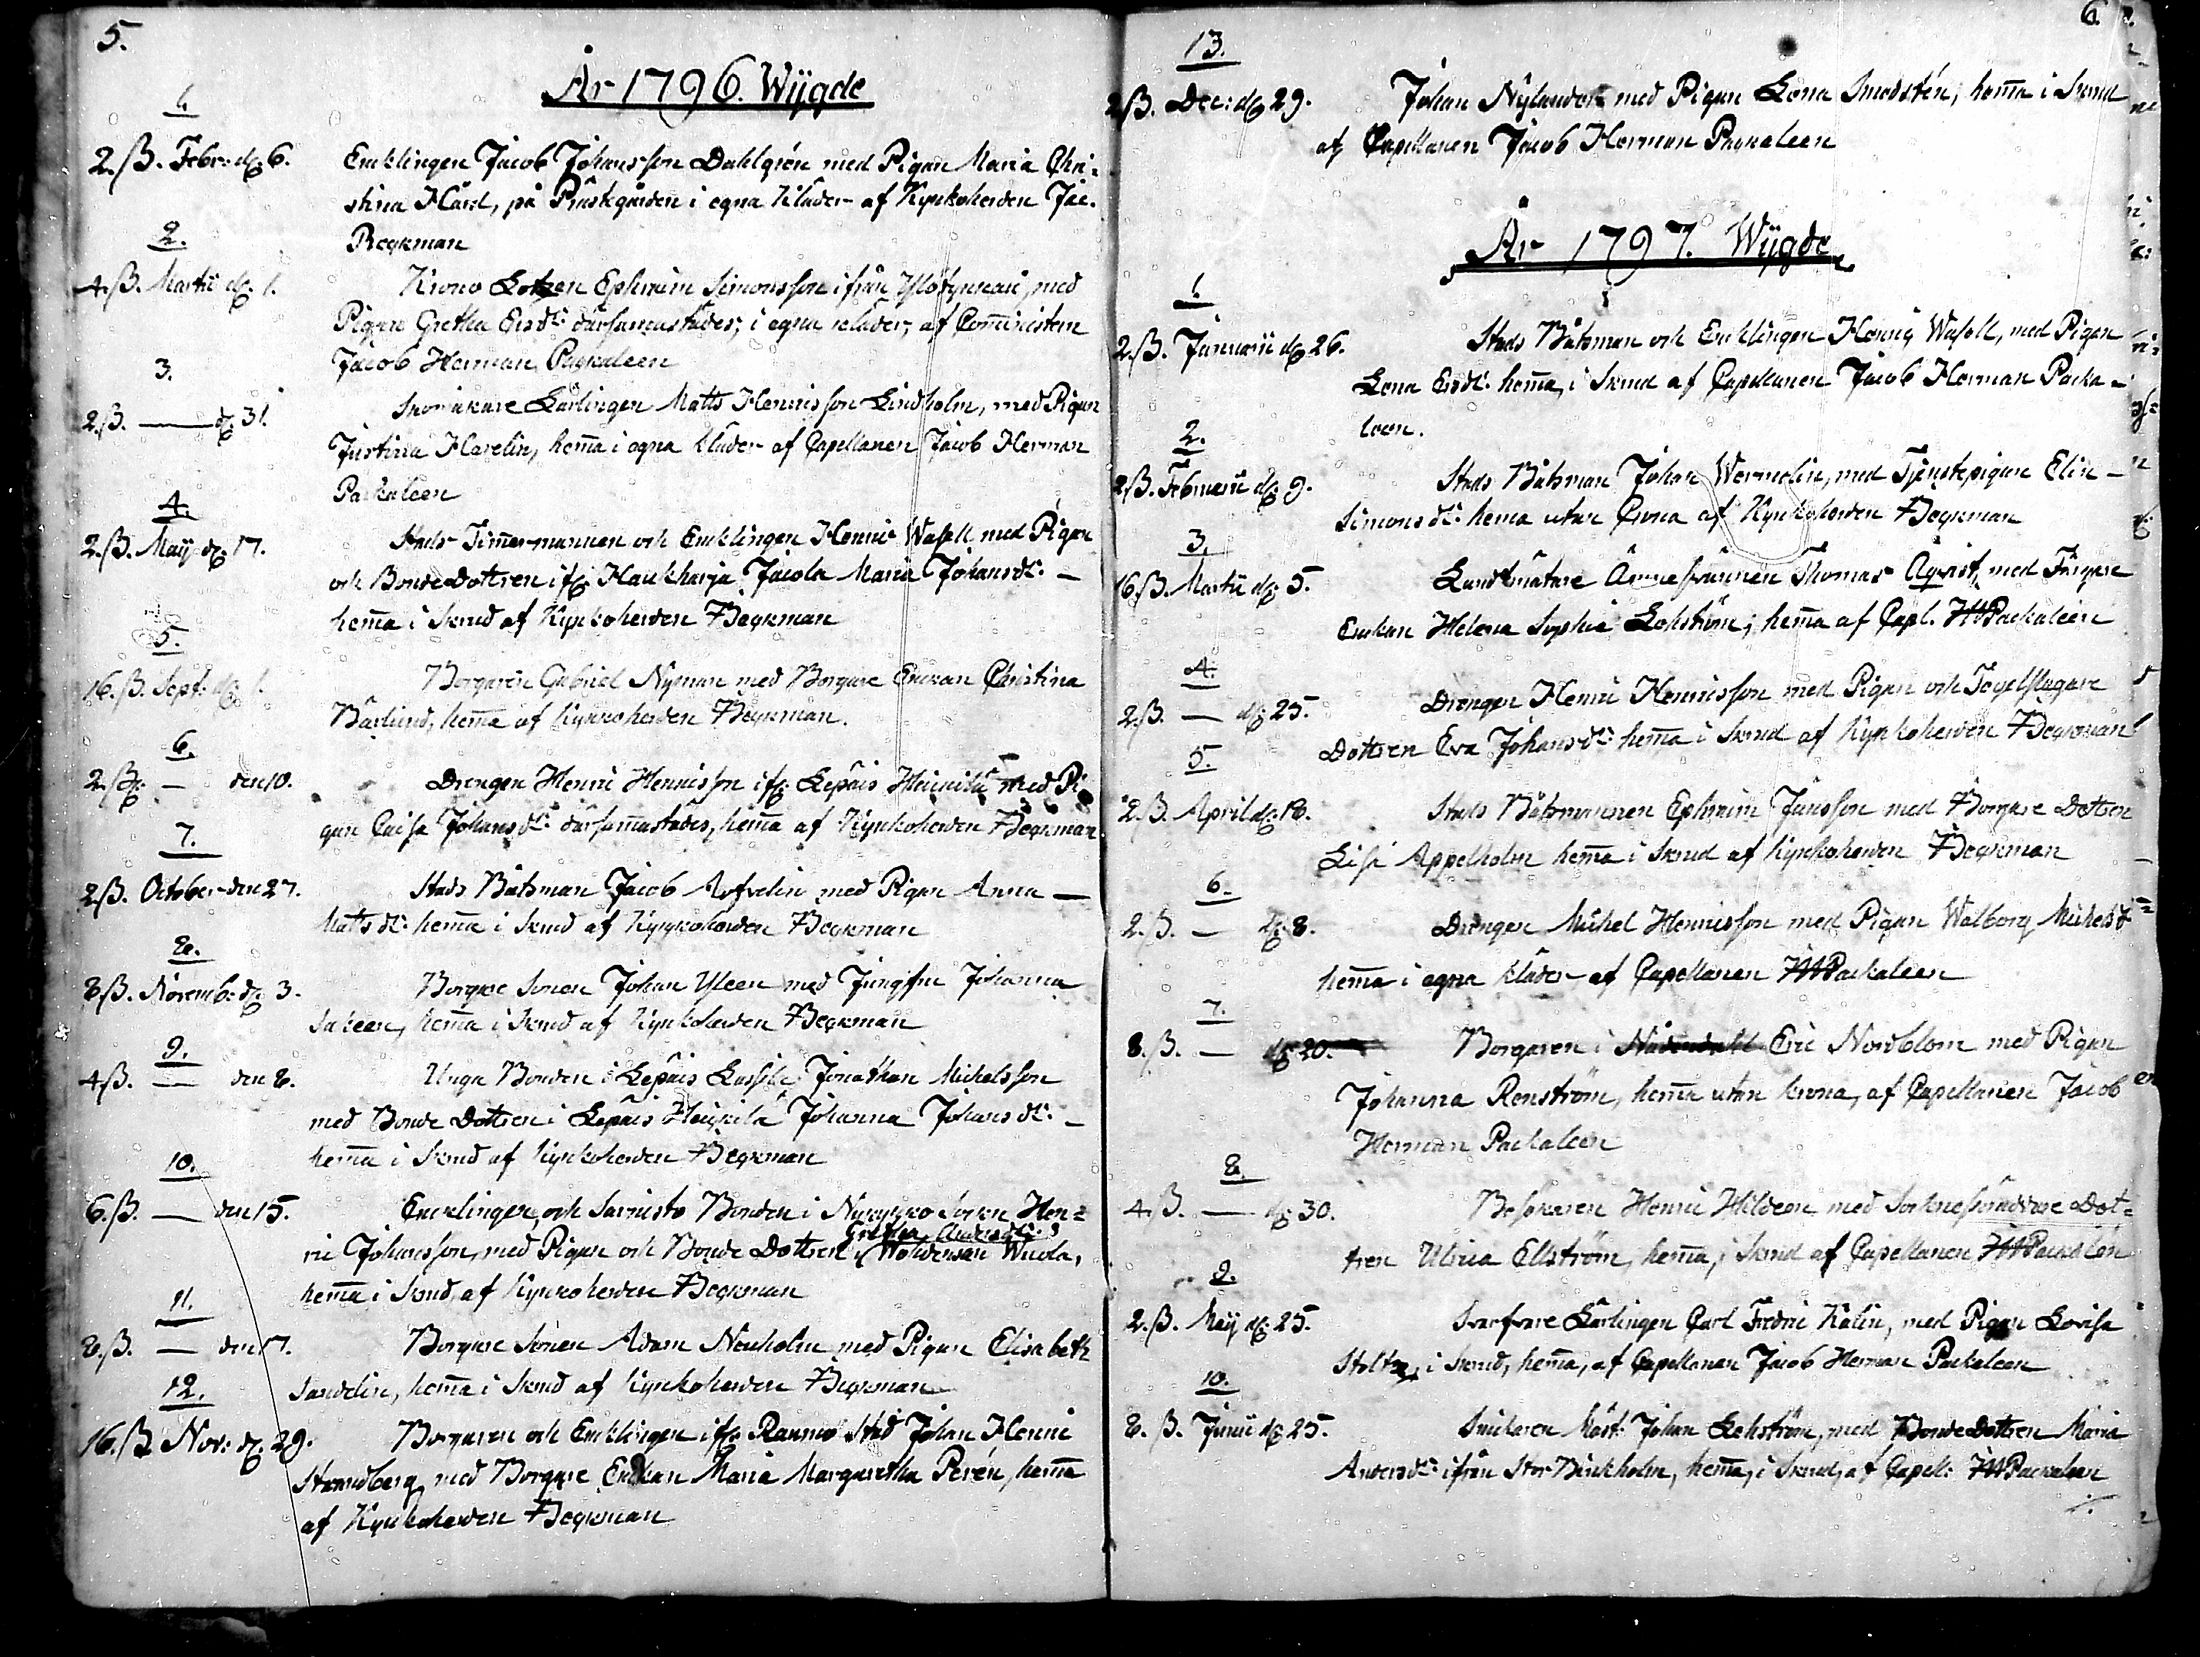 5.
År 1796. Wijgde
1.
2.ß. Febr: d. 6. Encklingen Jacob Johansson Dahlgrén med Pigan Maria Chri=
stina Hård, på Prästgården i egna kläder af Kyrkoherden Jac.
Begkman
2.
4.ß. Martii d. 1. Ephraim Simonsson ifrån med
Pigan Gretha Ersdr: därsammastädes; i egna kläder, af Comministern
Jacob Herman Packaleen
3.
2.ß. — d. 31. Skomakare Lärlingen Matts Henricsson Lindholm, med Pigan
Justina Harelin, hema i egna kläder af Capellanen Jacob Herman
Packaleen
4.
2.ß. Maij d. 17. Stads Timmermannen och Encklingen Henric Wasell med Pigan
och Bonde Dottren ifr: Haukharja Jacola Maria Johansdr: —
hema i Skrud af Kyrkoherden Begkman
5.
16.ß. Sept: d. 1. Borgaren Gabriel Nyman med Borgare Enckan Christina
Bärlund, hema af Kyrkoherden Begkman.
6.
2.ß. — den 10. Drengen Henric Henricsson ifr: Lepäis Heickilä med Pi
gan Caisa Johansdr: därsammastädes, hema af Kyrkoherden Begkman
7.
2.ß. October den 27. Stads Båtsman Jacob med Pigan Anna —
Mattsdr: hema i Skrud af Kyrkoherden Begkman
8.
8.ß. Novemb: d. 3. Borgare Sonen Johan Yleen med Jungfru Johanna
Saleen, hema i Skrud af Kyrkoherden Begkman
9.
4.ß. — den 8. Unga Bonden i Lepäis Lassila Jonathan Michelsson
med Bonde Dottren i Lepäis Heickilä Johanna Johansdr: —
hema i Skrud af Kyrkoherden Begkman
10.
6.ß. — den 15. Encklingen, och Bonden i Socken Hen=
Gretha Andersdr:
ric Johansson, med Pigan och Bonde Dottren i
hema i Skrud af Kyrkoherden Begkman
11.
8.ß. — den 17. Borgare Sonen Adam Nenholm med Pigan Elisabeth
Sandelin, hema i Skrud af Kyrkoherden Begkman
12.
16.ß Nov: d. 29. Borgaren och Encklingen ifr: Raumo Stad Johan Henric
Strandberg, med Borgare Enckan Maria Margaretha Perén, hema
af Kyrkoherden Begkman
6.
13.
2.ß. Dec: d. 29. Johan Nylander med Pigan Lena Smedstén, hema i Skrud
af Capellanen Jacob Herman Packaleen
År 1797. Wijgde
1.
2.ß. Januarii d. 26. Stads Båtsman och Encklingen Henric Wasell, med Pigan
Lena Ersdr: hema, i Skrud af Capellanen Jacob Herman Packa=
leen.
2.
2.ß. Februarii d. 9. Stads Båtsman Johan Wermelin, med Tjenstepigan Elin —
Simonsdr: hema utan Crona af Kyrkoherden Begkman
3.
16.ß. Martii d. 5. Landtmätare Thomas Aqvist, med Färgare
Enckan Helena Sophia Lekström; hema af Capl. JHPackaleen
4.
2.ß. — d. 25. Drengen Henric Henricsson med Pigan och Tegelslagare
Dottren Eva Johansdr: hema i Skrud af Kyrkoherden Begkman
5.
2.ß. April d. 18. Stads Båtsmannen Ephraim Jansson med Borgare Dottren
Lisa Appelholm hema i Skrud af Kyrkoherden Begkman
6.
2.ß. — d. 8. Drengen Michel Henricsson med Pigan Walborg Michelsd
hema i egna kläder af Capellanen JHPackaleen
7.
8.ß. — d. 20. Borgaren i Nådendahl Eric Nordblom med Pigan
Johanna Renström, hema utan krona, af Capellanen Jacob
Herman Packaleen
8.
4.ß. — d. 30. Besökaren Henric Hildeen med Sockneskräddare Dot=
tren Ulrica Ellström, hema, i Skrud af Capellanen JHPackaleen
9.
2.ß. Maij d. 25. Svarfvare Lärlingen Carl Fredric Kälin, med Pigan Lovisa
Stoltz, i Skrud, hema, af Capellanen Jacob Herman Packaleen
10.
8.ß. Junii d. 25. Snickaren Mäst: Johan Lekström, med Bonde Dottren Maria
Andersdr: ifrån Stor Birkholm, hema, i Skrud, af Capell: JHPackaleen